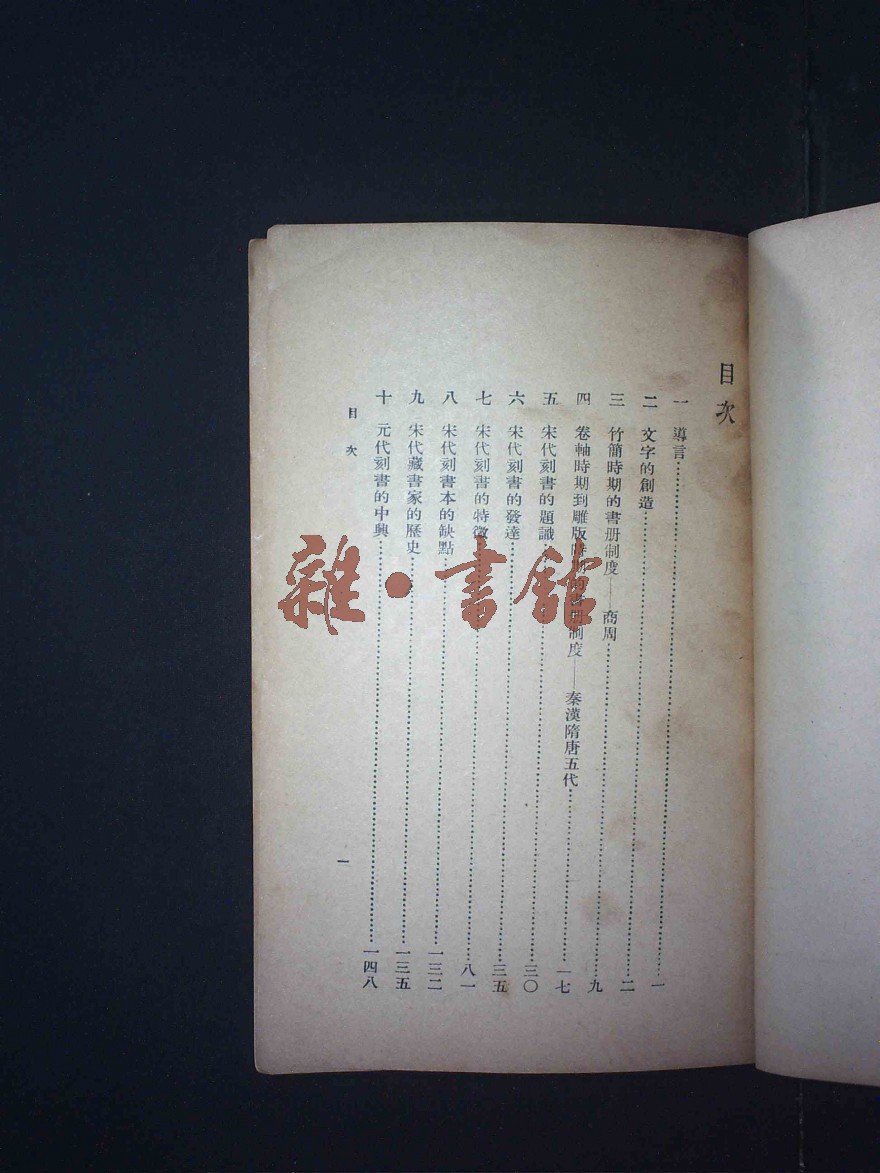 目次
一 導言 一
二 文字的創造 二
三 竹簡時期的書册制度——商周 九
四 卷軸時期到雕版時期的書册制度——秦漢隋唐五代 一七
五 宋代刻書的題識 三〇
六 宋代刻書的發達 三五
七 宋代刻書的特徵 八一
八 宋代刻書本的缺點 一三二
九 宋代藏書家的歷史 一三五
十 元代刻書的中興 一四八
目次
一
雜·書館